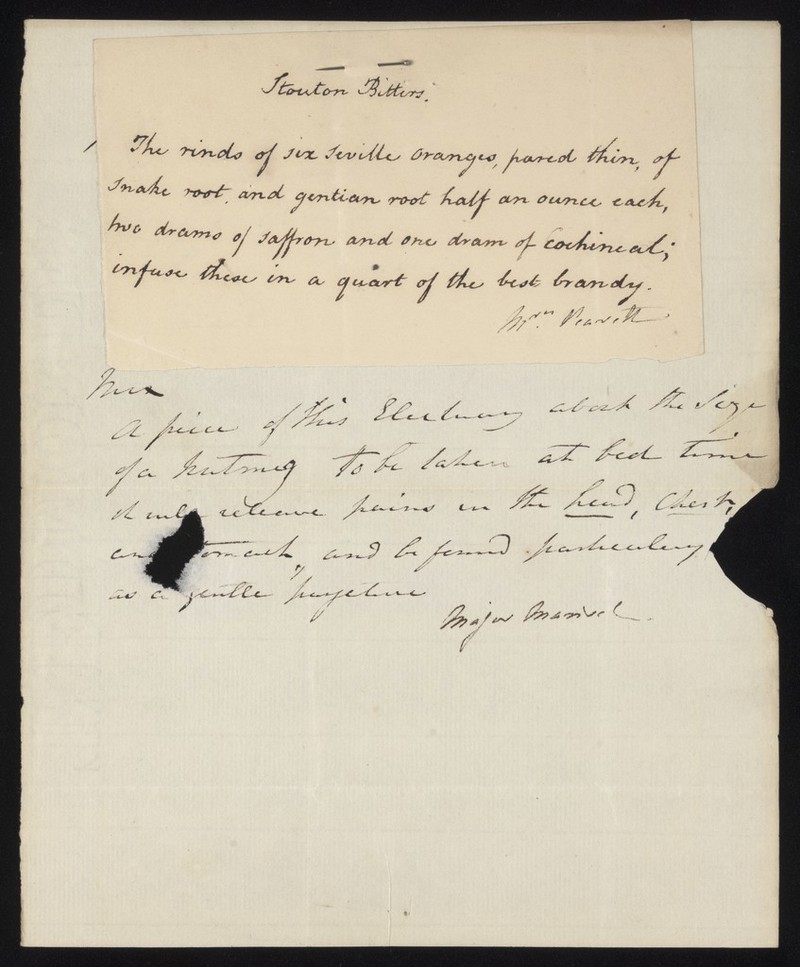 Stouton Bitters.
The rinds of six Seville oranges, pared thin, of
snake root, and gentian root half an ounce each,
two drams of saffron and one dram of Cochineal;
infuse these in a quart of the best brandy.
Mrs.
A piece of this Electuary about the size
of a Nutmeg to be taken at bed time
it will releave pains in the head, Chest,
and stomach, and be found particularly
as a gentle purgative
Major